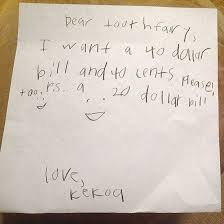 Dear toothfairy,
I want a 40 dollar
bill and 40 cents please!
too! P.S. a 20 dollar bill
love,
kekoa